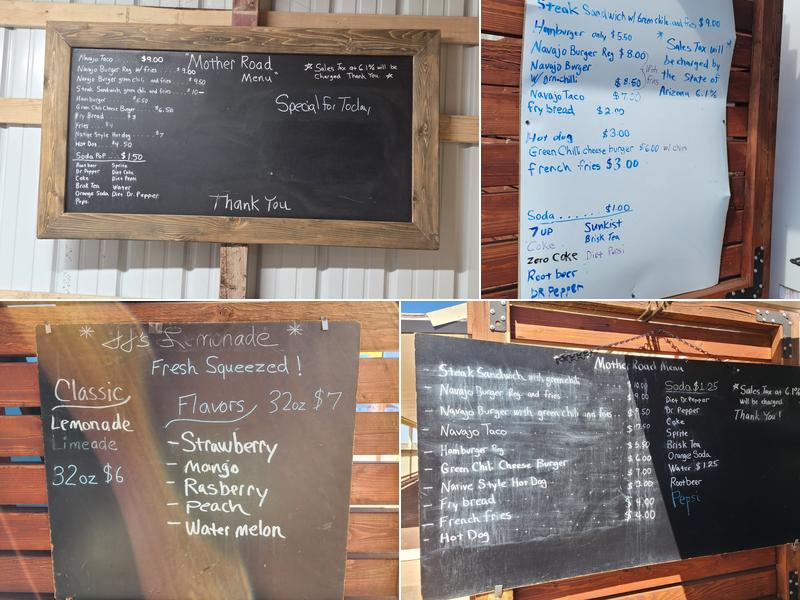 "Mother Road
Menu"
Navajo Taco $9.00
Navajo Burger Reg w/ fries $9.00
Navajo Burger green chili, and fries $9.50
Steak Sandwich, green chili and fries $10-
Hamburger $5.50
Green Chili Cheese Burger $6.50
Fry Bread $3
Fries $4
Native Style Hot dog $7
Hot Dog $4.50
Soda Pop $1.50
Root beer Sprite
Dr Pepper Diet Coke
Coke Diet Pepsi
Brisk Tea Water
Orange Soda Diet Dr. Pepper
Pepsi
* Sales Tax at 6.1% will be
Charged Thank You *
Special for Today
Thank You
Steak Sandwich w/ Green chile and fries $9.00
Hamburger only $5.50
Navajo Burger Reg $8.00
Navajo Burger
w/ Grn chili $8.50
With fries
Navajo Taco $7.50
fry bread $2.00
Hot dog $3.00
Green Chili cheese burger $6.00 w/ chips
french fries $3.00
* Sales Tax will *
be charged by
the State of
Arizona 6.1%
Soda $1.00
7 UP Sunkist
Coke Brisk Tea
Zero Coke Diet Pepsi
Root beer
DR Pepper
* JJ's Lemonade *
Fresh Squeezed!
Classic
Lemonade
Limeade
32oz $6
Flavors 32oz $7
- Strawberry
- Mango
- Rasberry
- Peach
- Water melon
"Mother Road Menu"
Steak Sandwich with green chili
Navajo Burger Reg and fries $9.00
Navajo Burger with green chili and fries $9.50
Navajo Taco
Hamburger Reg $5.50
Green Chili Cheese Burger $6.00
Native Style Hot Dog $7.00
Fry bread $3.00
French fries $4.00
Hot Dog $4.00
Soda $1.25
Diet Dr Pepper
Dr. Pepper
Coke
Sprite
Brisk Tea
Orange Soda
Water $1.25
Rootbeer
Pepsi
* Sales Tax at 6.1%
will be charged
Thank You!